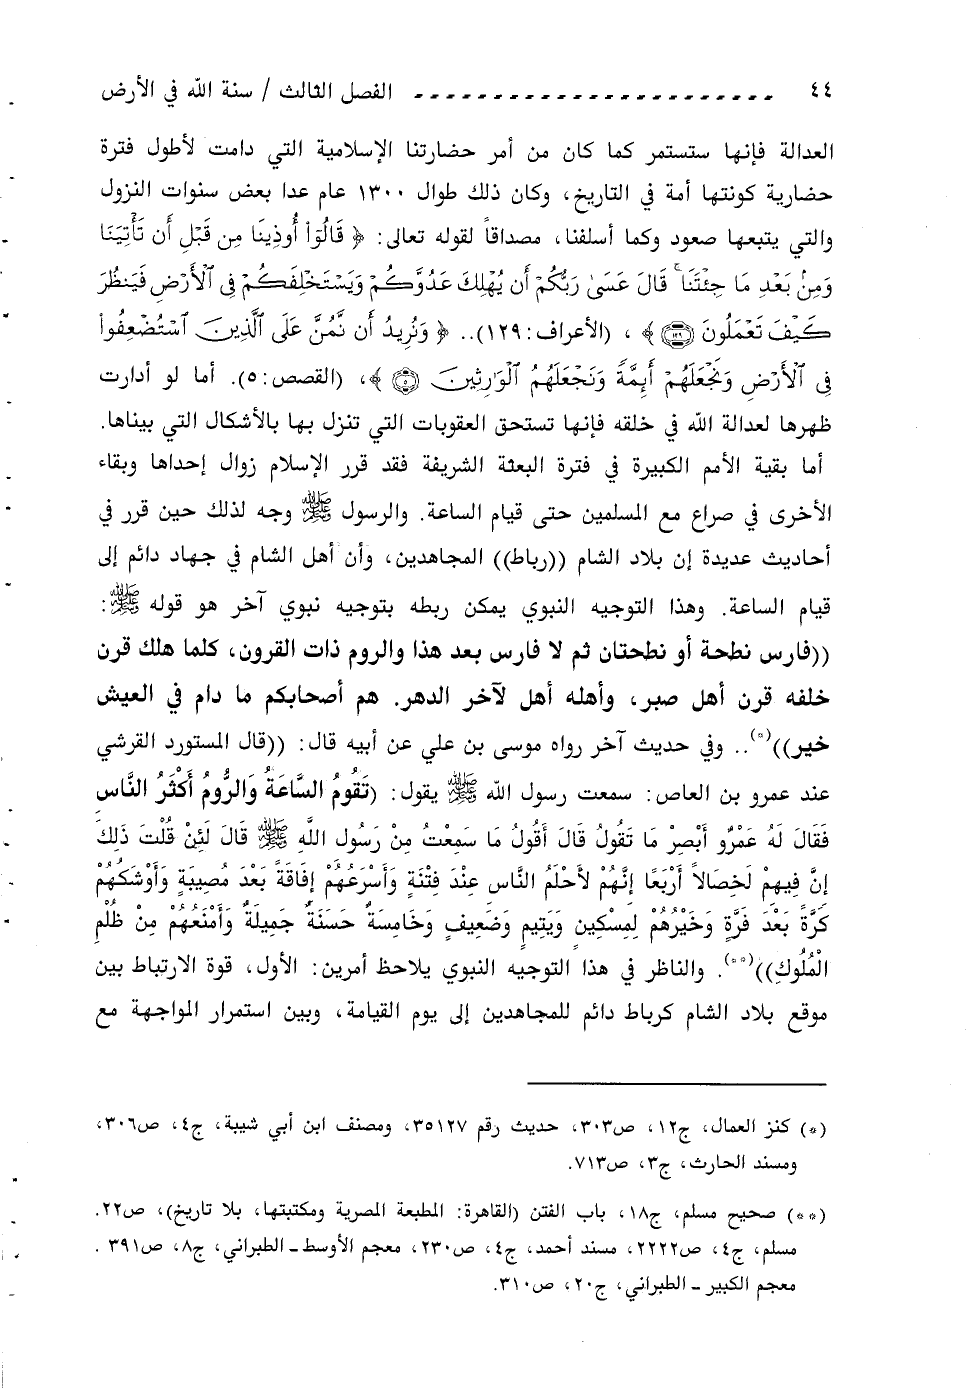 ٤٤ ـ ـ ـ ـ ـ ـ ـ ـ ـ ـ ـ ـ ـ ـ ـ ـ ـ ـ ـ ـ ـ ـ ـ الفصل الثالث / سنة الله في الأرض
العدالة فإنها ستستمر كما كان من أمر حضارتنا الإسلامية التي دامت لأطول فترة
حضارية كونتها أمة في التاريخ، وكان ذلك طوال ١٣٠٠ عام عدا بعض سنوات النزول
والتي يتبعها صعود وكما أسلفنا، مصداقاً لقوله تعالى: ﴿ قَالُوٓاْ أُوذِينَا مِن قَبْلِ أَن تَأْتِيَنَا
وَمِنۢ بَعْدِ مَا جِئْتَنَا ۚ قَالَ عَسَىٰ رَبُّكُمْ أَن يُهْلِكَ عَدُوَّكُمْ وَيَسْتَخْلِفَكُمْ فِى ٱلْأَرْضِ فَيَنظُرَ
كَيْفَ تَعْمَلُونَ ﴿١٢٩﴾ ﴾ ، (الأعراف:١٢٩).. ﴿ وَنُرِيدُ أَن نَّمُنَّ عَلَى ٱلَّذِينَ ٱسْتُضْعِفُواْ
فِى ٱلْأَرْضِ وَنَجْعَلَهُمْ أَئِمَّةً وَنَجْعَلَهُمُ ٱلْوَٰرِثِينَ ﴿٥﴾ ﴾، (القصص:٥). أما لو أدارت
ظهرها لعدالة الله في خلقه فإنها تستحق العقوبات التي تنزل بها بالأشكال التي بيناها.
أما بقية الأمم الكبيرة في فترة البعثة الشريفة فقد قرر الإسلام زوال إحداها وبقاء
الأخرى في صراع مع المسلمين حتى قيام الساعة. والرسول ﷺ وجه لذلك حين قرر في
أحاديث عديدة إن بلاد الشام ((رباط)) المجاهدين، وأن أهل الشام في جهاد دائم إلى
قيام الساعة. وهذا التوجيه النبوي يمكن ربطه بتوجيه نبوي آخر هو قوله ﷺ:
((فارس نطحة أو نطحتان ثم لا فارس بعد هذا والروم ذات القرون، كلما هلك قرن
خلفه قرن أهل صبر، وأهله أهل لآخر الدهر. هم أصحابكم ما دام في العيش
خير))(*).. وفي حديث آخر رواه موسى بن علي عن أبيه قال: ((قال المستورد القرشي
عند عمرو بن العاص: سمعت رسول الله ﷺ يقول: (تَقُومُ السَّاعَةُ وَالرُّومُ أَكْثَرُ النَّاسِ
فَقَالَ لَهُ عَمْرٌو أَبْصِرْ مَا تَقُولُ قَالَ أَقُولُ مَا سَمِعْتُ مِنْ رَسُولِ اللَّهِ ﷺ قَالَ لَئِنْ قُلْتَ ذَلِكَ
إِنَّ فِيهِمْ لَخِصَالاً أَرْبَعًا إِنَّهُمْ لَأَحْلَمُ النَّاسِ عِنْدَ فِتْنَةٍ وَأَسْرَعُهُمْ إِفَاقَةً بَعْدَ مُصِيبَةٍ وَأَوْشَكُهُمْ
كَرَّةً بَعْدَ فَرَّةٍ وَخَيْرُهُمْ لِمِسْكِينٍ وَيَتِيمٍ وَضَعِيفٍ وَخَامِسَةٌ حَسَنَةٌ جَمِيلَةٌ وَأَمْنَعُهُمْ مِنْ ظُلْمِ
الْمُلُوكِ))(**). والناظر في هذا التوجيه النبوي يلاحظ أمرين: الأول، قوة الارتباط بين
موقع بلاد الشام كرباط دائم للمجاهدين إلى يوم القيامة، وبين استمرار المواجهة مع
(*) كنز العمال، ج١٢، ص٣٠٣، حديث رقم ٣٥١٢٧، ومصنف ابن أبي شيبة، ج٤، ص٣٠٦،
ومسند الحارث، ج٣، ص٧١٣.
(**) صحيح مسلم، ج١٨، باب الفتن (القاهرة: المطبعة المصرية ومكتبتها، بلا تاريخ)، ص٢٢.
مسلم، ج٤، ص٢٢٢٢، مسند أحمد، ج٤، ص٢٣٠، معجم الأوسط ـ الطبراني، ج٨، ص٣٩١ .
معجم الكبير ـ الطبراني، ج٢٠، ص٣١٠.